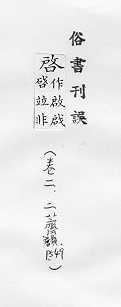 俗書刊誤
啓
作啟
啓並非
（卷二．二 薺韻． ）